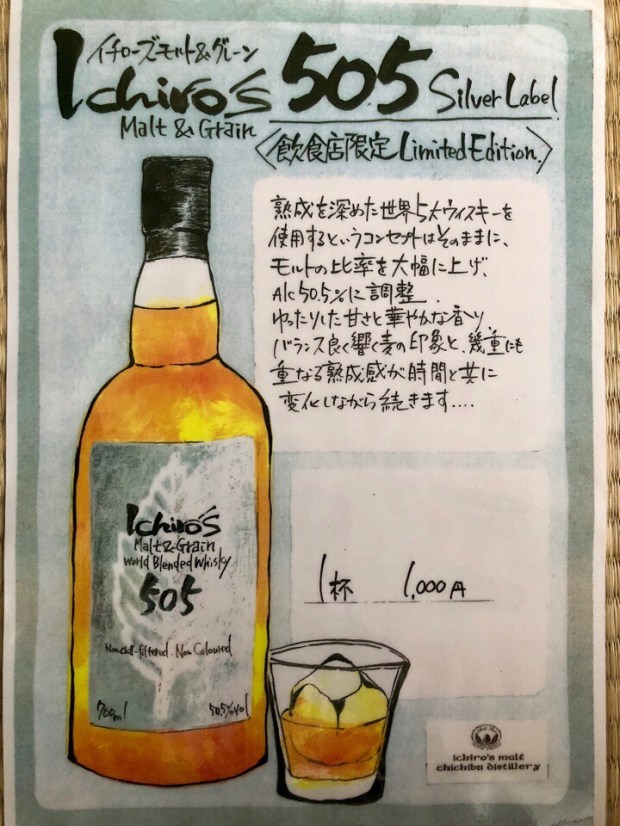 イチローズモルト&グレーン
Ichiro's 505 Silver Label
Malt & Grain
〈飲食店限定 Limited Edition.〉
熟成を深めた世界5大ウィスキーを
使用するというコンセプトはそのままに、
モルトの比率を大幅に上げ、
Alc 50.5%に調整.
ゆったりした甘さと華やかな香り
バランス良く響く麦の印象と、幾重にも
重なる熟成感が時間と共に
変化しながら続きます....
Ichiro's
Malt & Grain
World Blended Whisky
505
Non chill-filtered. Non Coloured
700ml 50.5%vol
1杯 1,000円
ichiro's malt
chichibu distillery